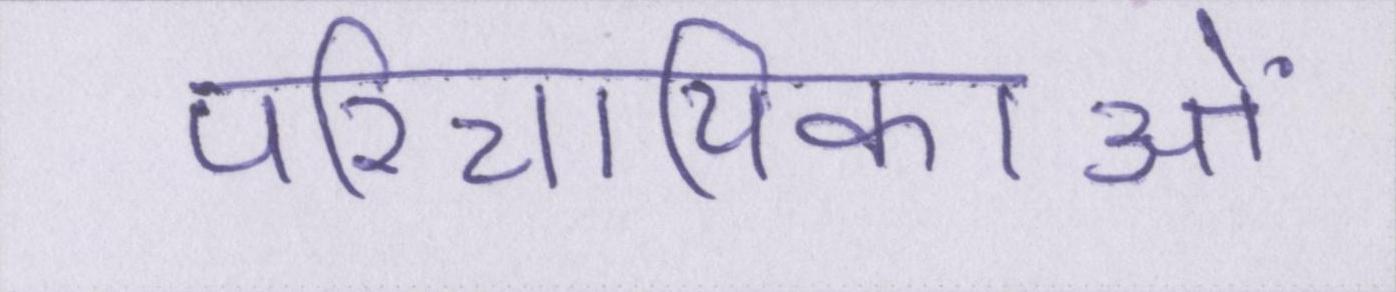 परिचायिकाओं